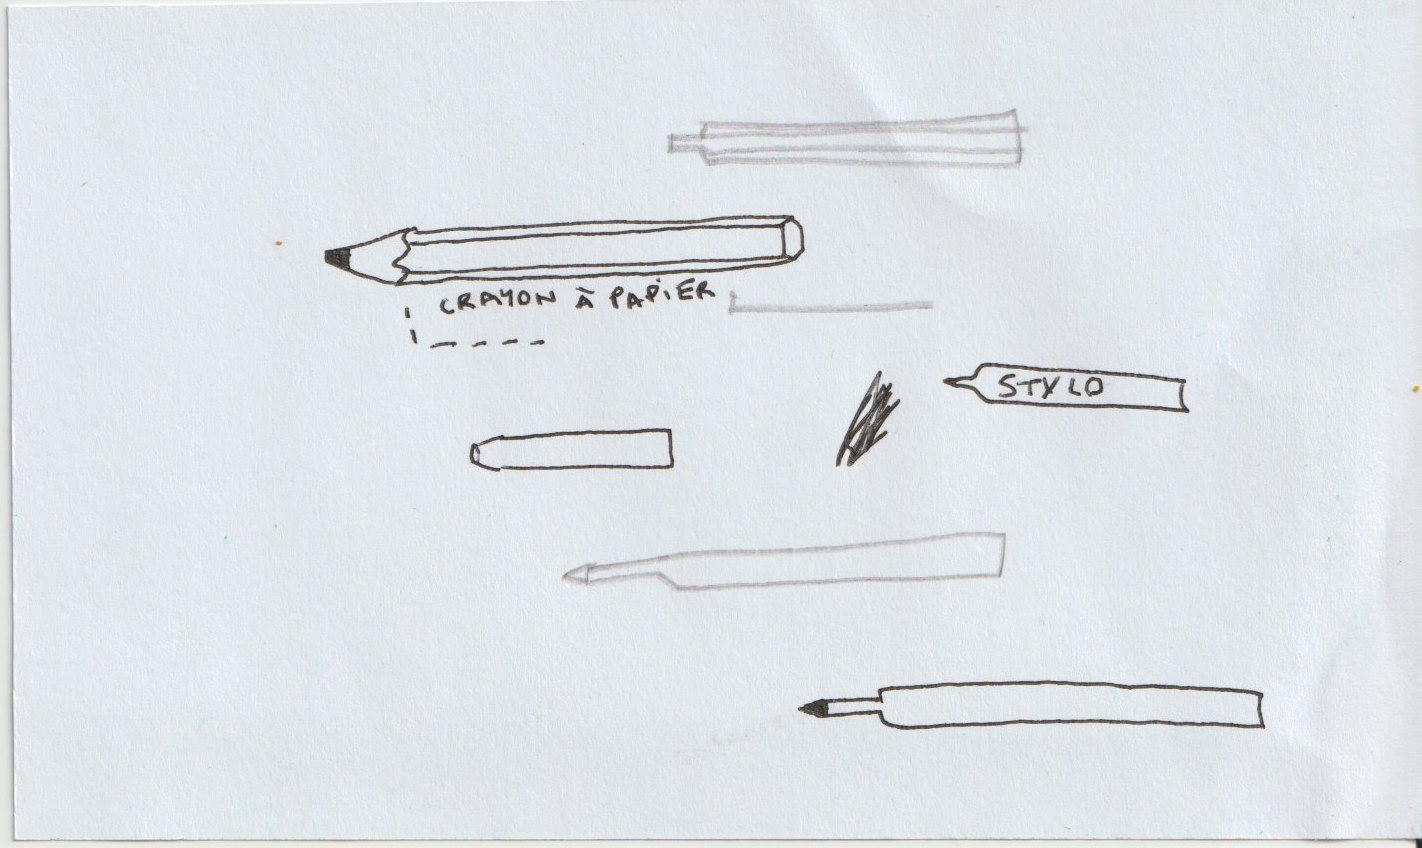 CRAYON À PAPIER
STYLO